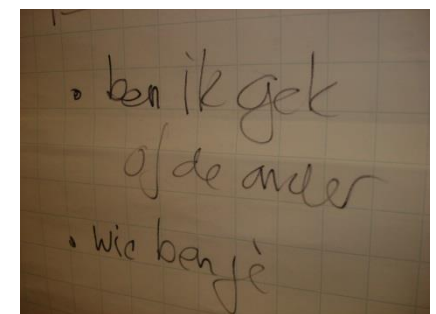 • ben ik gek
of de ander
• wie ben je